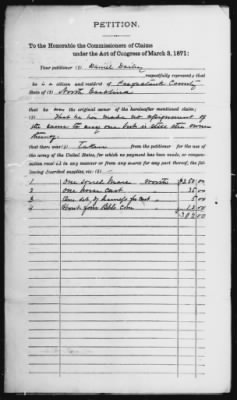 PETITION.
To the Honorable the Commissioners of Claims
under the Act of Congress of March 3, 1871:
Your petitioner (1) Daniel
respectfully represents that
he is a citizen and resident of County
State of (2) North Carolina
that he was the original owner of the hereinafter mentioned claim;
(3) That he has made no assignment of
the same to any one but is still the owner
thereof
that there was (4) Taken from the petitioner for the use
of the army of the United States, for which no payment has been made, or compen-
sation received in any manner or from any source, the fol-
lowing described supplies, viz: (5)
1 One sorrel Mare worth $250.00
2 One horse cart " 35.00
3 One set of harness for Cart " 5.00
4 About four Bbls Corn "